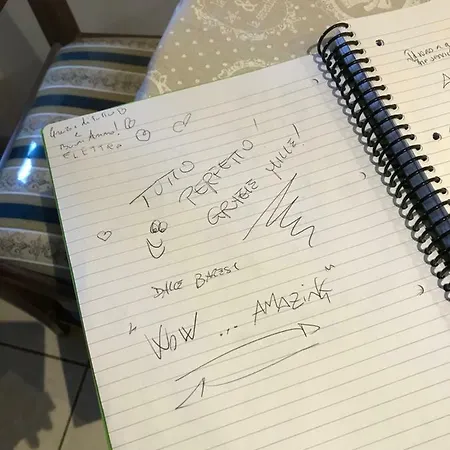 Grazie di tutto
e
Buon Anno!
ELETTRA
TUTTO
PERFETTO!
GRAZIE MILLE!
DALLE BARESI
"WOW ... AMAZING"